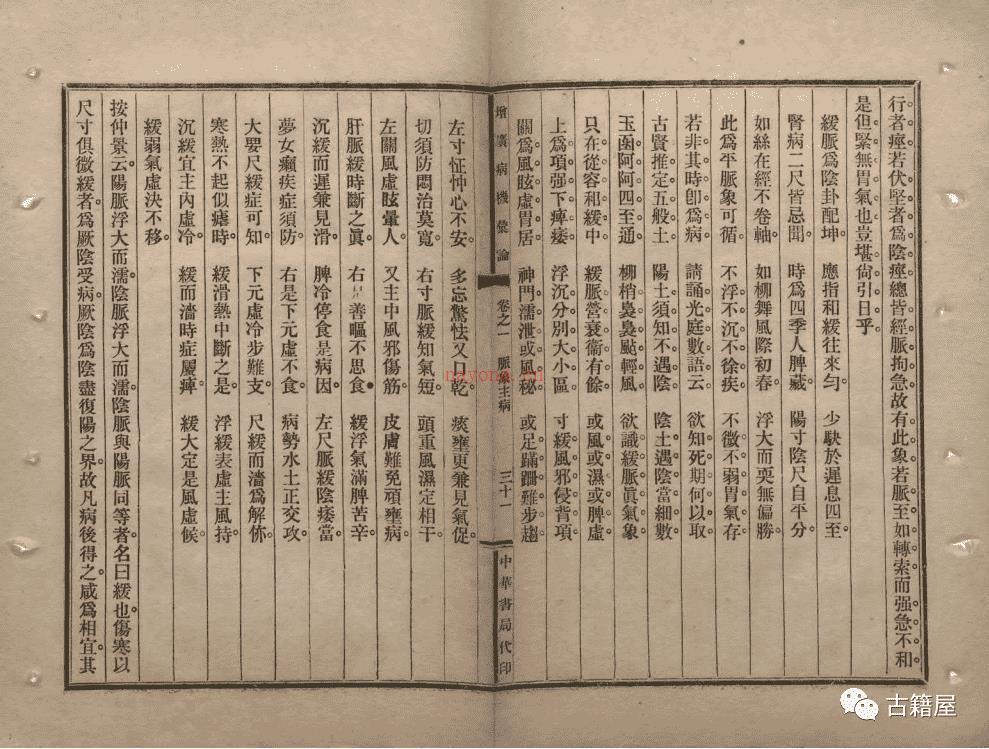 行者痙若伏堅者爲陰痙總皆經脈拘急故有此象若脈至如轉索而强急不和
是但緊無胃氣也豈堪尙引日乎
緩脈爲陰卦配坤　應指和緩往來勻　少駃於遲息四至
腎病二尺皆忌聞　時爲四季人脾藏　陽寸陰尺自平分
如絲在經不卷軸　如柳舞風際初春　浮大而耎無偏勝
此爲平脈象可循　不浮不沉不徐疾　不微不弱胃氣存
若非其時卽爲病　請誦光庭數語云　欲知死期何以取
古賢推定五般土　陽土須知不遇陰　陰土遇陰當細數
玉函阿阿四至通　柳梢裊裊颭輕風　欲識緩脈眞氣象
只在從容和緩中　緩脈營衰衞有餘　或風或濕或脾虛
上爲項强下痺痿　浮沉分別大小區　寸緩風邪侵背項
關爲風眩虛胃居　神門濡泄或風秘　或足蹣跚難步趨
增廣病機彙論　卷之一　脈象主病　三十一　中華書局代印
左寸怔忡心不安　多忘驚怯又乾　痰壅更兼見氣促
切須防悶治莫寬　右寸脈緩知氣短　頭重風濕定相干
左關風虛眩暈人　又主中風邪傷筋　皮膚難免頑壅病
肝脈緩時斷之眞　右善嘔不思食　緩浮氣滿脾苦辛
沉緩而遲兼見滑　脾冷停食是病因　左尺脈緩陰痿當
夢女癲疾症須防　右是下元虛不食　病勢水土正交攻
大要尺緩症可知　下元虛冷步難支　尺緩而濇爲解㑊
寒熱不起似瘧時　緩滑熱中斷之是　浮緩表虛主風持
沉緩宜主內虛冷　緩而濇時症屬痺　緩大定是風虛候
緩弱氣虛決不移
按仲景云陽脈浮大而濡陰脈浮大而濡陰脈與陽脈同等者名曰緩也傷寒以
尺寸俱微緩者爲厥陰受病厥陰爲陰盡復陽之界故凡病後得之咸爲相宜其
nayona.cn
古籍屋